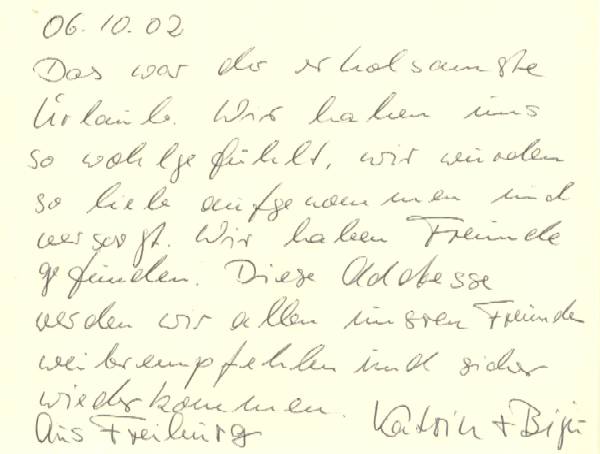 06.10.02
Das war der erholsamste
Urlaub. Wir haben uns
so wohlgefühlt, wir wurden
so lieb aufgenommen und
versorgt. Wir haben Freunde
gefunden. Diese Addresse
werden wir allen unsren Freunden
weiterempfehlen und sicher
wiederkommen.
Aus Freiburg Katrin +